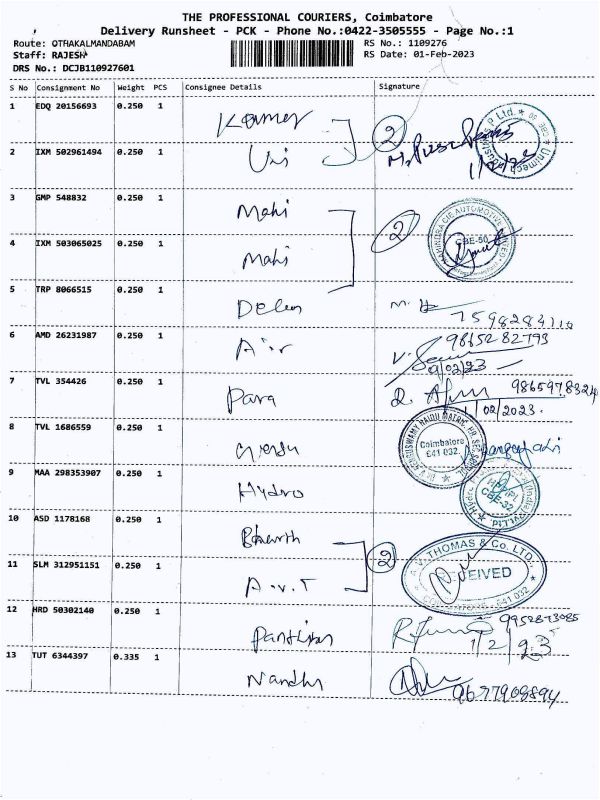 THE PROFESSIONAL COURIERS, Coimbatore
Delivery Runsheet - PCK - Phone No.:0422-3505555 - Page No.:1
Route: OTHAKALMANDABAM RS No.: 1109276
Staff: RAJESH RS Date: 01-Feb-2023
DRS No.: DCJB110927601
S No Consignment No Weight PCS Consignee Details Signature
1 EDQ 20156693 0.250 1
2 IXM 502961494 0.250 1 Uni 2
3 GMP 548832 0.250 1 Mahi
4 IXM 503065025 0.250 1 Mahi 2 CBE-50
5 TRP 8066515 0.250 1 7598284110
6 AMD 26231987 0.250 1 Air 9865282793
7 TVL 354426 0.250 1 Para 9865978324
1/02/2023.
8 TVL 1686559 0.250 1 Coimbatore
641 032.
9 MAA 298353907 0.250 1 Hydro CBE-32
10 ASD 1178168 0.250 1 Bharth
11 SLM 312951151 0.250 1 A.V.T 2 A.V. THOMAS & Co. LTD.
RECEIVED
12 HRD 50302140 0.250 1 9952873085
1/2/23
13 TUT 6344397 0.335 1 Nandhu 9677908894